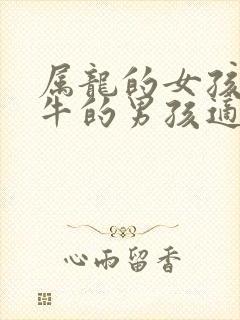 属龍的女孩
牛的男孩適
心雨留香